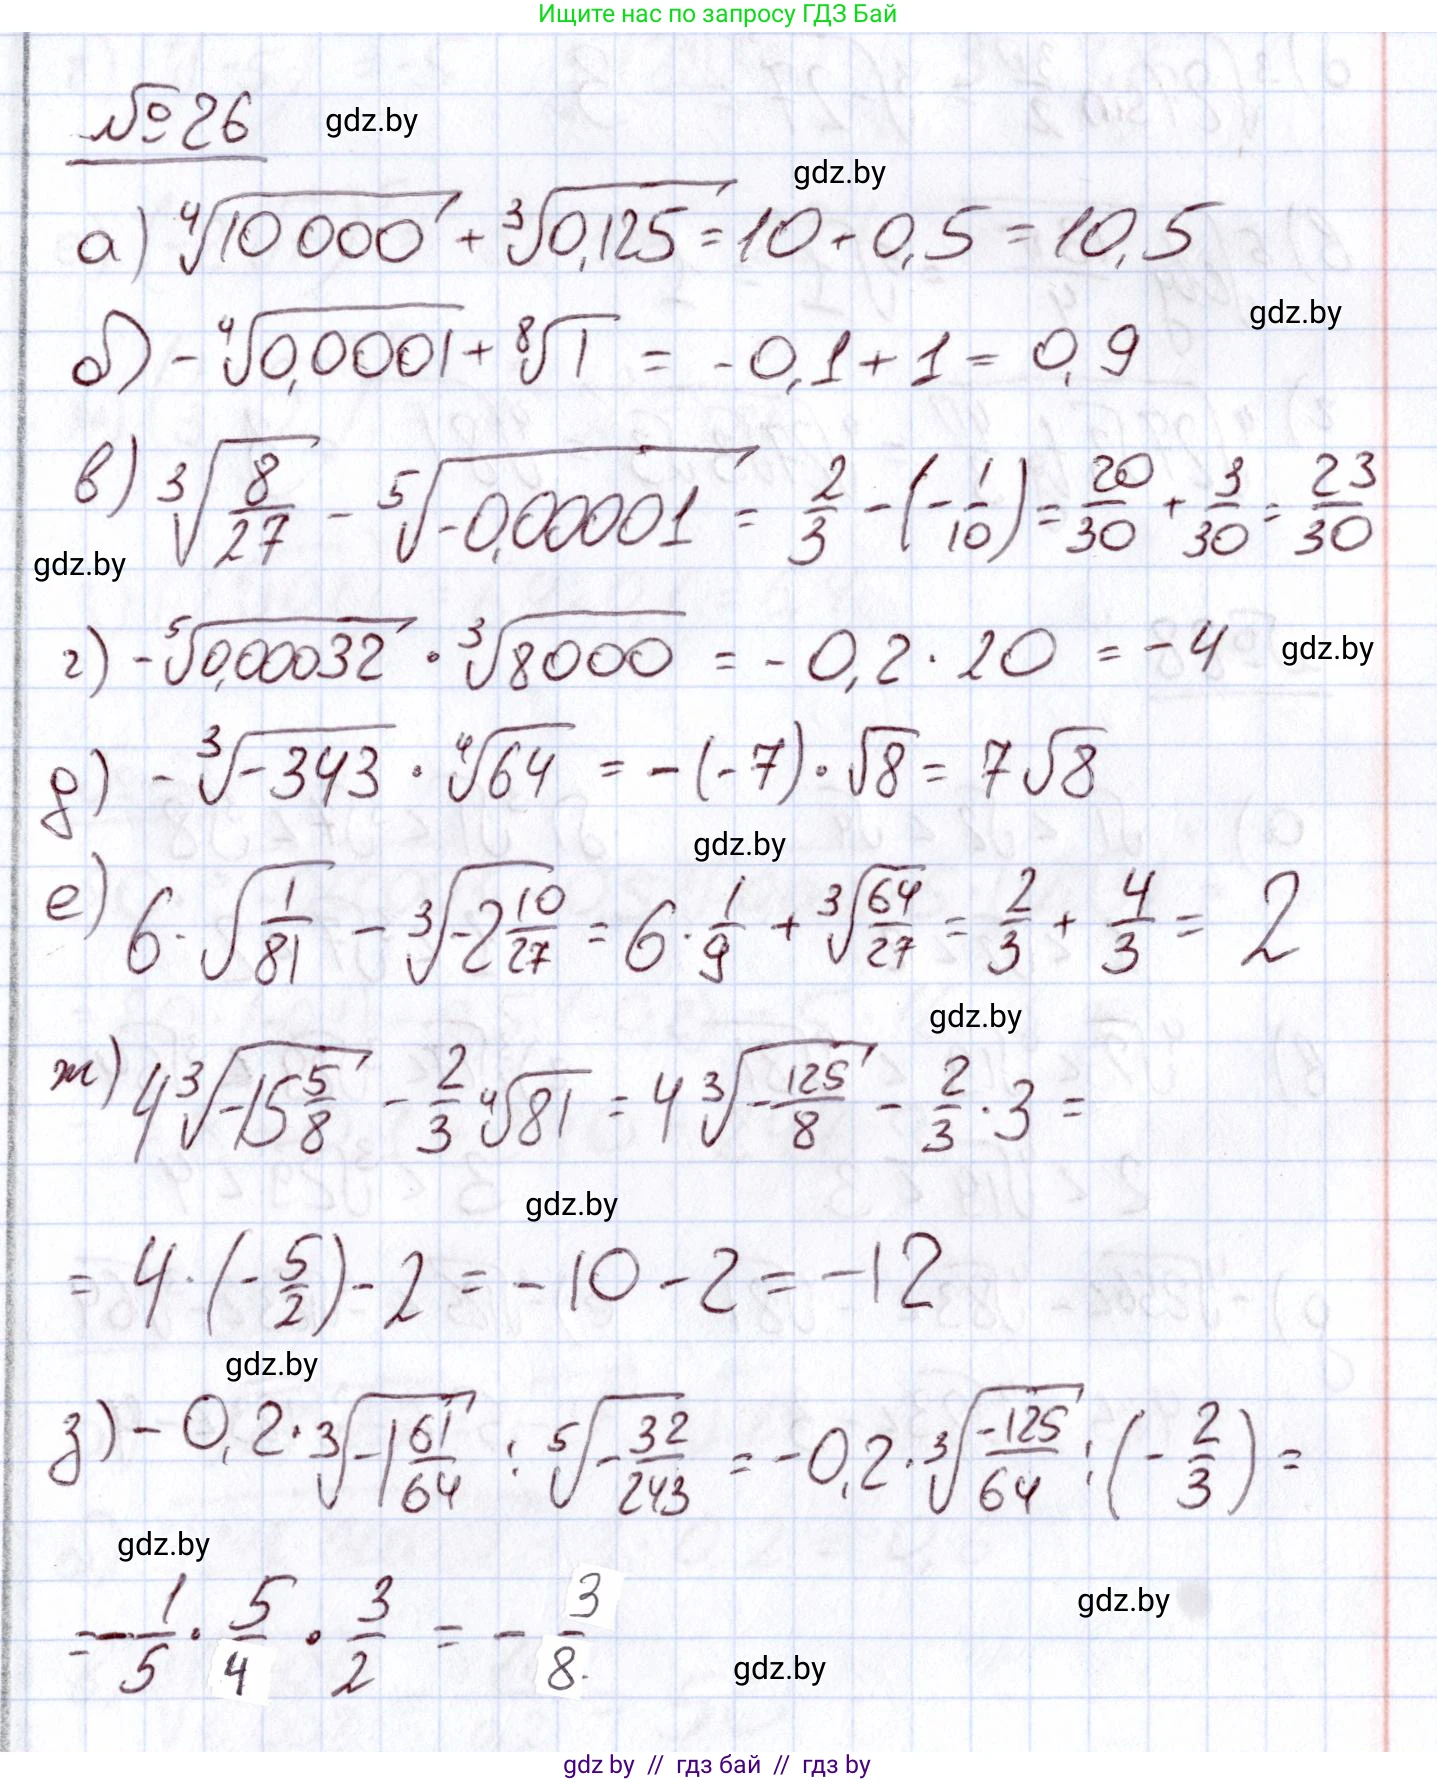 Ищите нас по запросу ГДЗ Бай
№ 26 gdz.by
gdz.by
а) ⁴√10 000 + ³√0,125 = 10 + 0,5 = 10,5
gdz.by
б) - ⁴√0,0001 + ⁸√1 = -0,1 + 1 = 0,9
в) ³√(8/27) - ⁵√(-0,00001) = 2/3 - (-1/10) = 20/30 + 3/30 = 23/30
gdz.by
г) - ⁵√0,00032 · ³√8000 = -0,2 · 20 = -4 gdz.by
д) - ³√(-343) · ⁴√64 = -(-7) · √8 = 7√8
gdz.by
е) 6 · √(1/81) - ³√(-2 10/27) = 6 · 1/9 + ³√(64/27) = 2/3 + 4/3 = 2
gdz.by
ж) 4 ³√(-15 5/8) - 2/3 ⁴√81 = 4 ³√(-125/8) - 2/3 · 3 =
gdz.by
= 4 · (-5/2) - 2 = -10 - 2 = -12
gdz.by
з) -0,2 · ³√(-1 61/64) : ⁵√(-32/243) = -0,2 · ³√(-125/64) : (-2/3) =
gdz.by
gdz.by
= -1/5 · 5/4 · 3/2 = - 3/8.
gdz.by
gdz by // гдз бай // гдз by